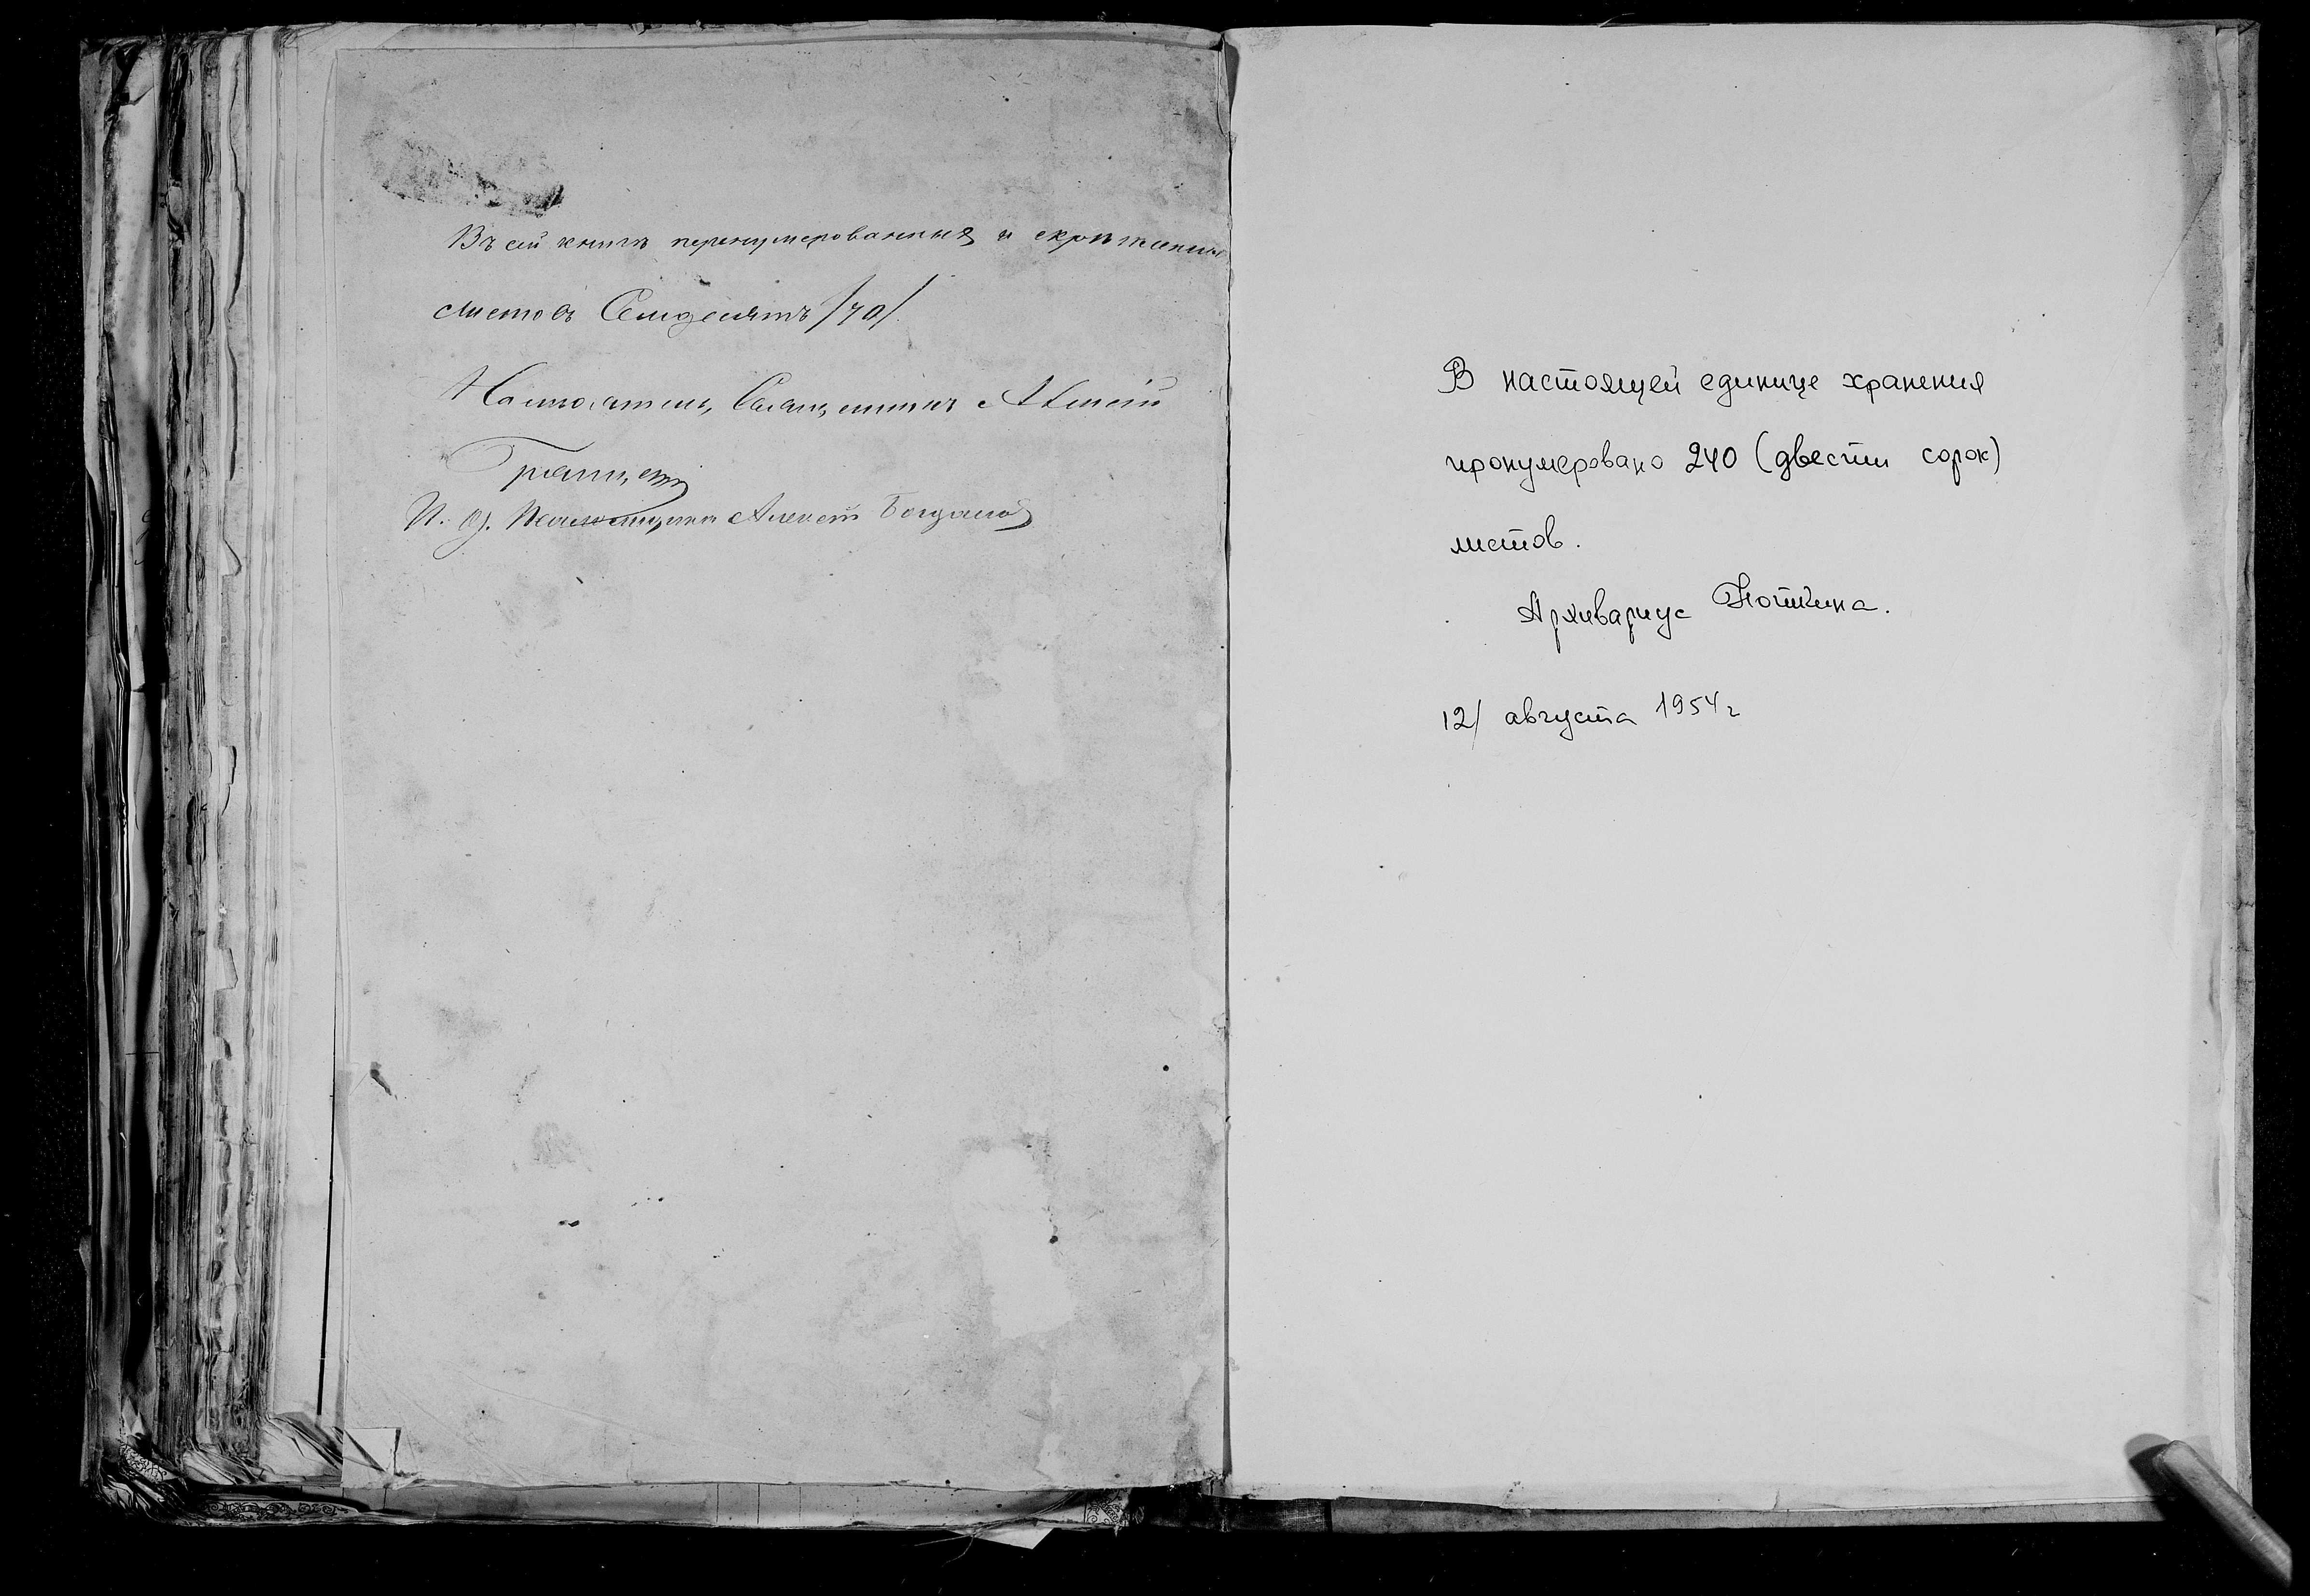 Въ сей книгѣ перенумерованныхъ и скрѣпленныхъ
листовъ Семдесятъ /70/.
Настоятель, Священникъ Алексѣй
И. д. Псаломщика Алексѣй Богданов
В настоящей единице хранения
пронумеровано 240 (двести сорок)
листов.
Архивариус
12/ августа 1954 г